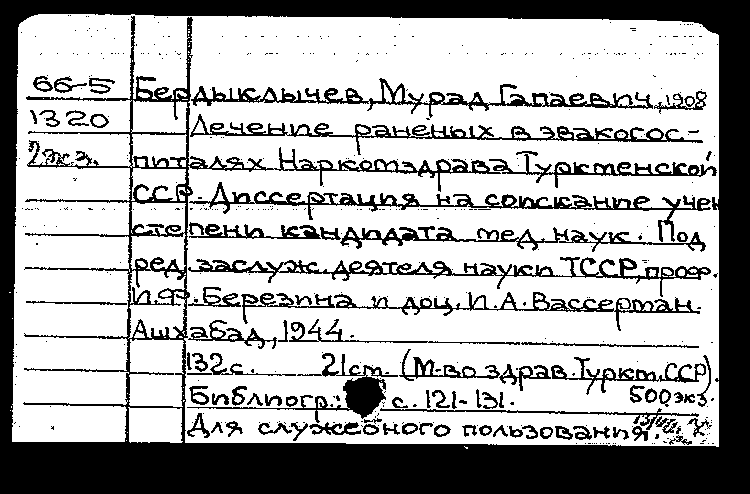 66-5 Бердыклычев, Мурад Гапаевич, 1908
1320 Лечение раненых в эвакогос-
2 экз. питалях Наркомздрава Туркменской
ССР. Диссертация на соискание учен
степени кандидата мед. наук. Под
ред. заслуж. деятеля науки ТССР, проф.
И.Ф. Березина и доц. И.А. Вассерман.
Ашхабад, 1944.
132 с. 21 см. (М-во здрав. Туркм. ССР).
Библиогр.: с. 121-131. 500 экз.
Для служебного пользования.